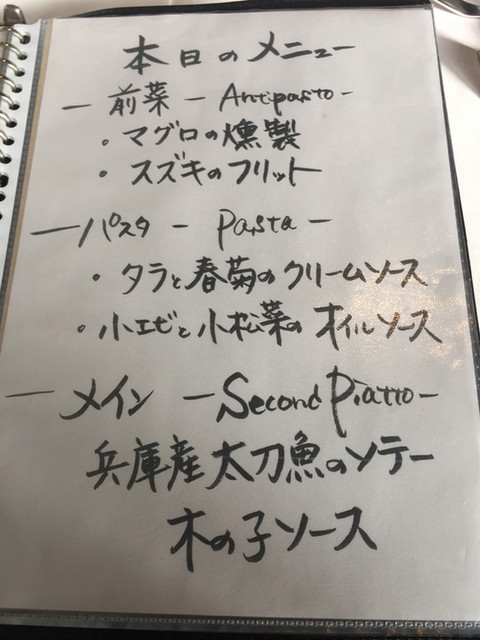 本日のメニュー
ー 前菜 ー Antipasto -
・マグロの燻製
・スズキのフリット
ー パスタ ー Pasta ー
・タラと春菊のクリームソース
・小エビと小松菜のオイルソース
ー メイン ー Second Piatto ー
兵庫産太刀魚のソテー
木の子ソース